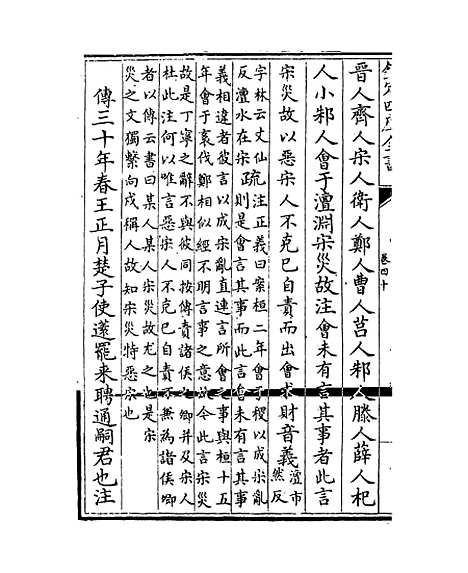 晉人齊人宋人衛人鄭人曹人莒人邾人滕人薛人杞
人小邾人會于澶淵宋災故注會未有言其事者此言
宋災故以惡宋人不克已自責而出會求財音義澶市然反
字林云丈仙反澶水在宋疏注正義曰案桓二年會于稷以成宋亂則是會言其事而此言會未有言其事
義相違者彼言以成宋亂直連言所會之事與桓十五年會于袲伐鄭相似經不明言事之意故今此言宋災
故是丁寧之辭不與彼同按傳責諸侯之卿并及宋人杜此注何以唯言惡宋人不克已自責不兼為諸侯卿
者以傳云書曰某人某人宋災故尤之也是宋災之文獨繫向戌稱人故知宋災特惡宋也
傳三十年春王正月楚子使薳罷来聘通嗣君也注
卷四十